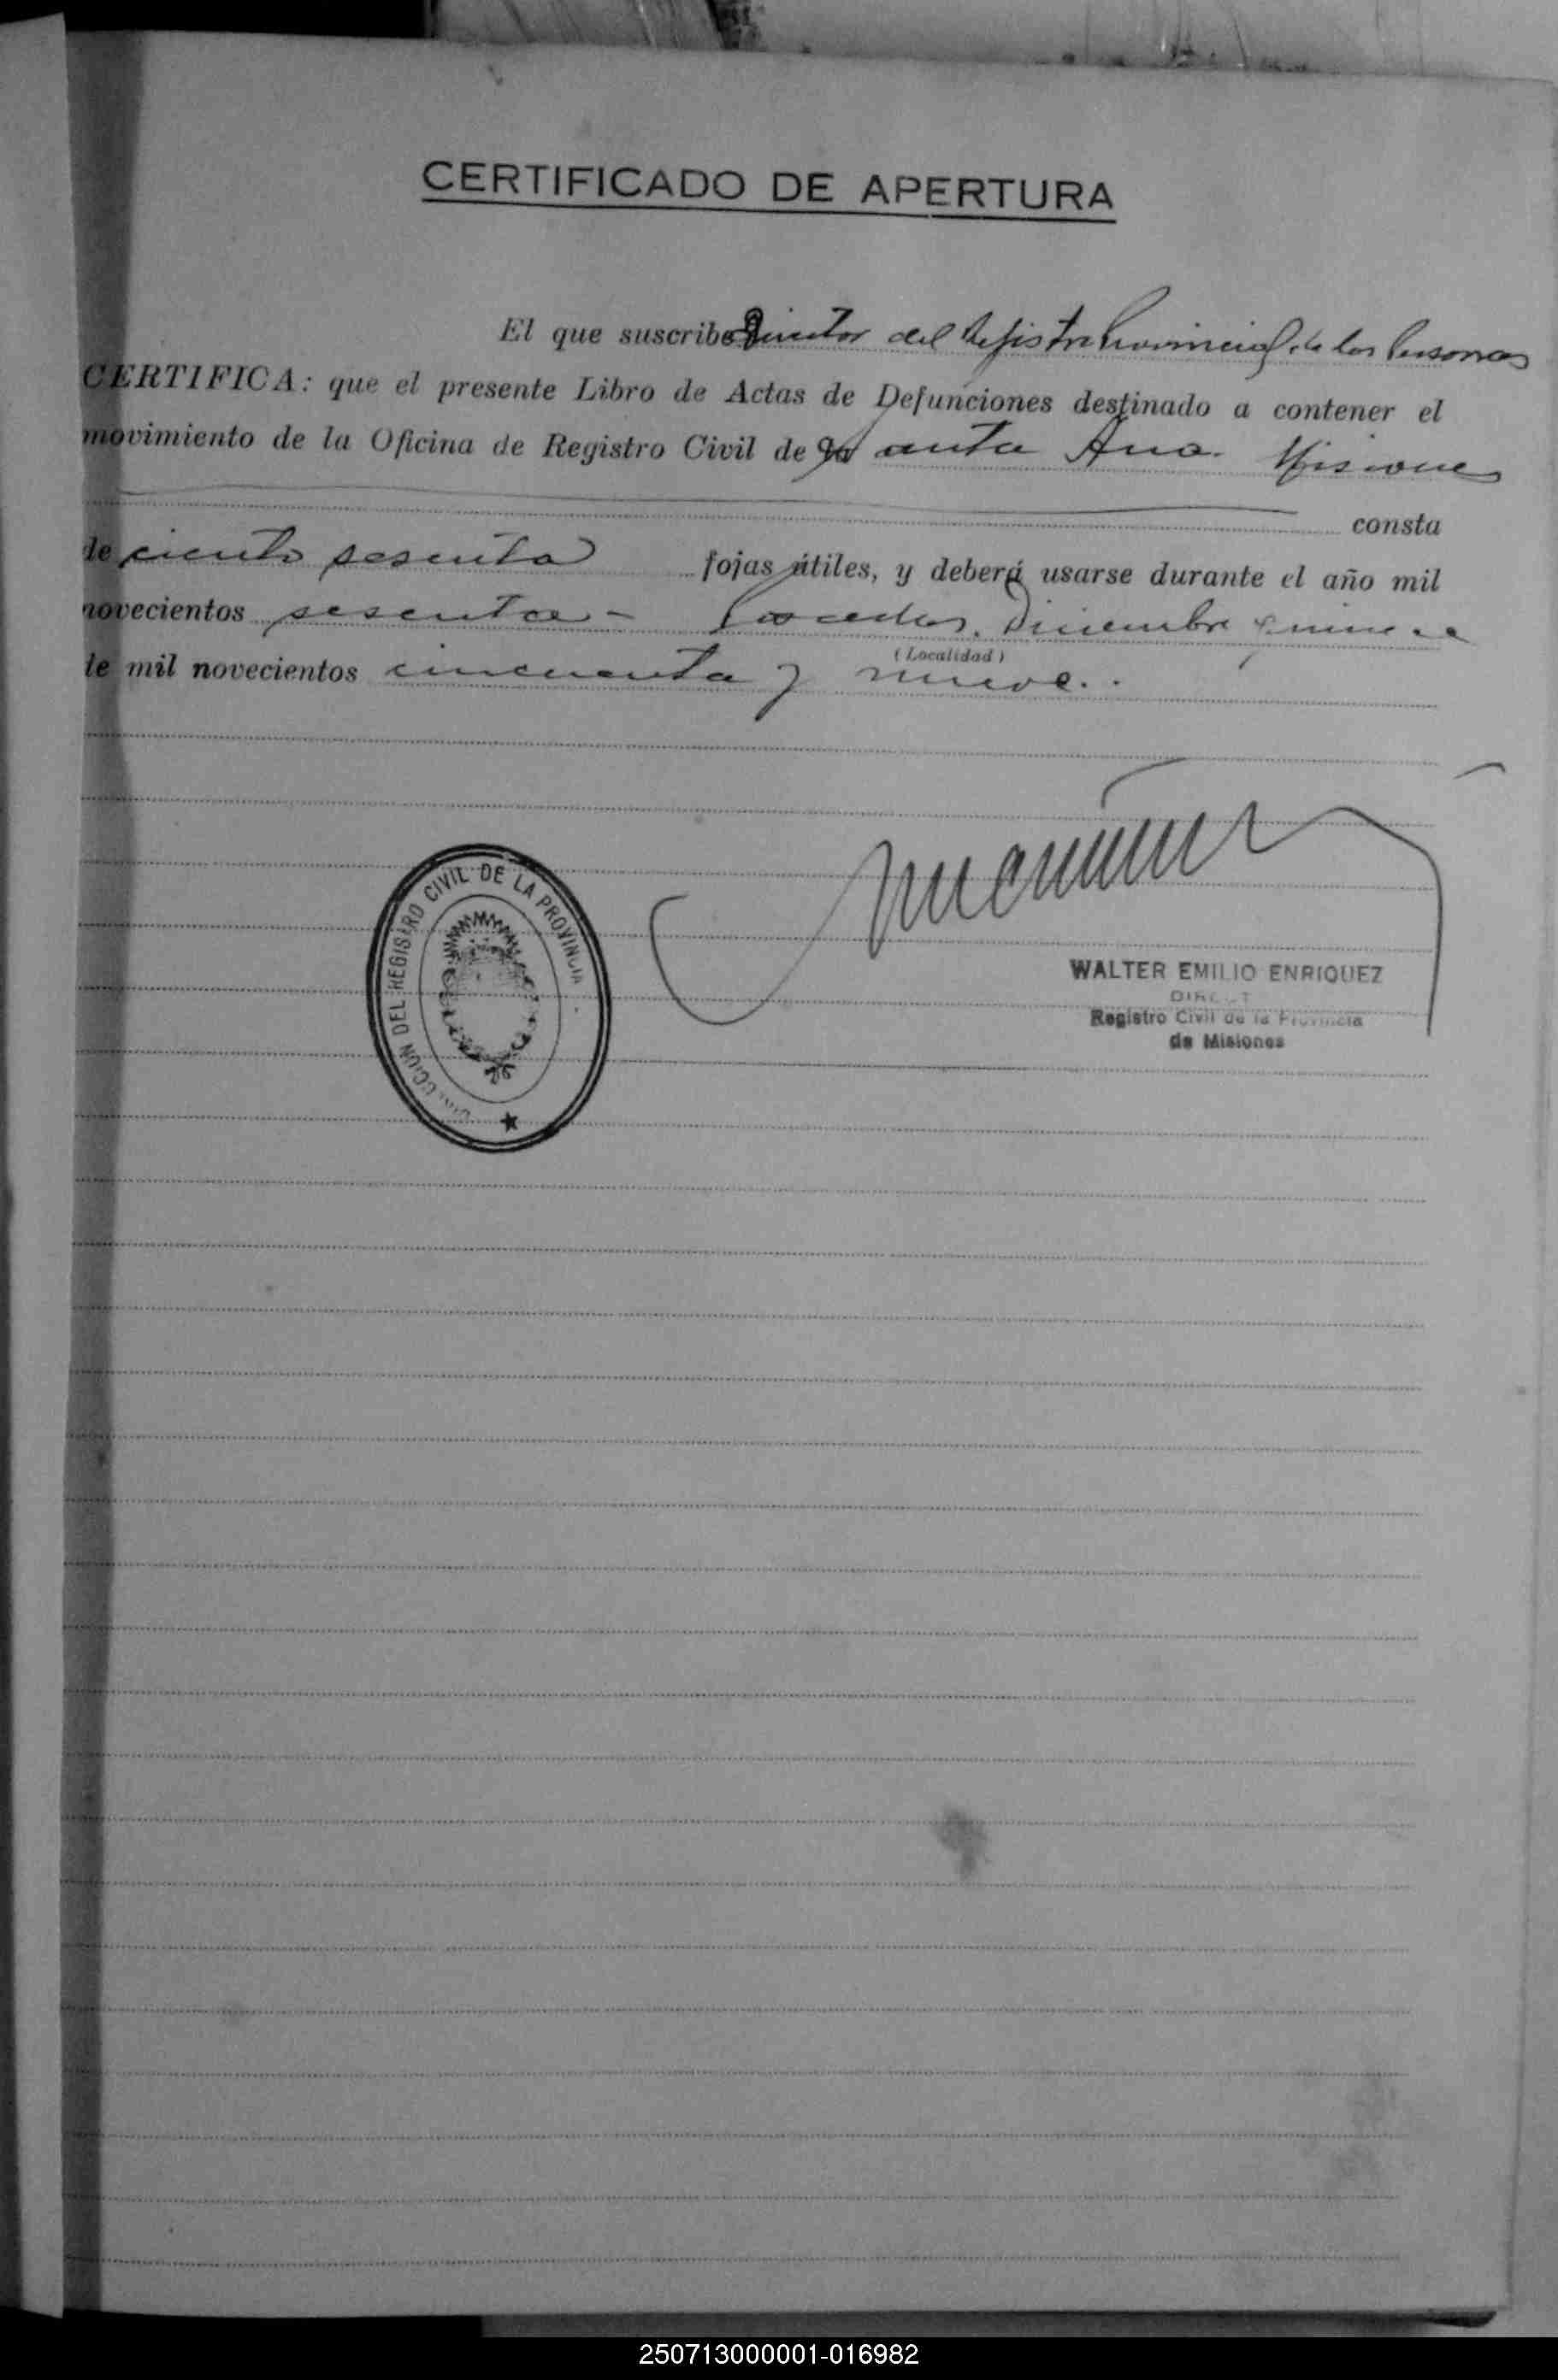 CERTIFICADO DE APERTURA
El que suscribe Director del Registro Provincial de las Personas
CERTIFICA: que el presente Libro de Actas de Defunciones destinado a contener el
movimiento de la Oficina de Registro Civil de Santa Ana. Misiones
consta
de ciento sesenta fojas útiles, y deberá usarse durante el año mil
novecientos sesenta - Posadas, Diciembre quince
(Localidad)
de mil novecientos cincuenta y nueve.
DEL REGISTRO CIVIL DE LA PROVINCIA
WALTER EMILIO ENRIQUEZ
Registro Civil de la Provincia
de Misiones
250713000001-016982